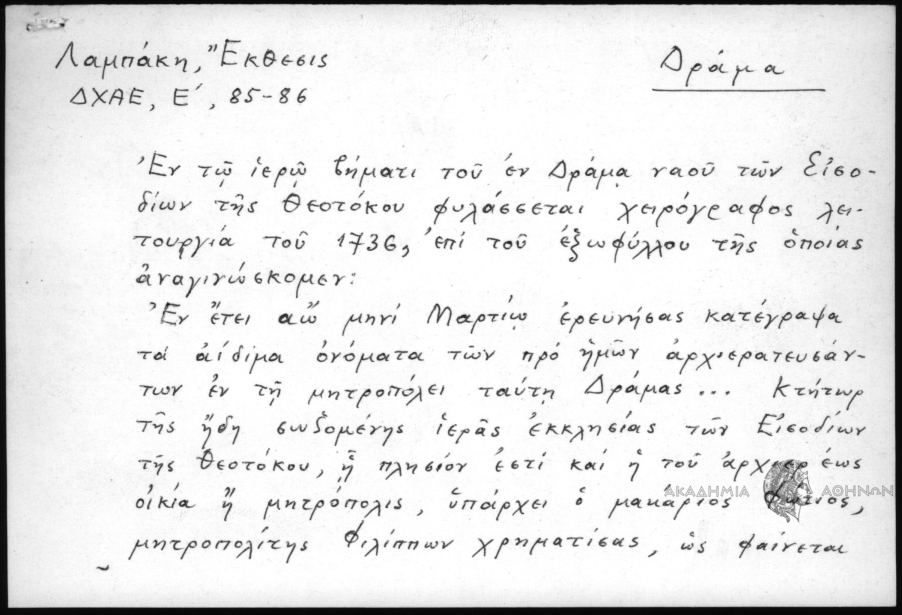 Λαμπάκη, Ἔκθεσις
Δράμα
ΔΧΑΕ, Ε΄, 85-86
Ἐν τῷ ἱερῷ βήματι τοῦ ἐν Δράμᾳ ναοῦ τῶν Εἰσο-
δίων τῆς Θεοτόκου φυλάσσεται χειρόγραφος λει-
τουργία τοῦ 1736, ἐπί τοῦ ἐξωφύλλου τῆς ὁποίας
ἀναγινώσκομεν:
Ἐν ἔτει αω̄ μηνί Μαρτίῳ ἐρευνήσας κατέγραψα
τά ἀίδιμα ὀνόματα τῶν πρό ἡμῶν ἀρχιερατευσάν-
των ἐν τῇ μητροπόλει ταύτῃ Δράμας ... Κτήτωρ
τῆς ἤδη σωζομένης ἱερᾶς ἐκκλησίας τῶν Εἰσοδίων
τῆς Θεοτόκου, ᾗ πλησίον ἐστί καί ἡ τοῦ ἀρχιερέως
οἰκία ἤ μητρόπολις, ὑπάρχει ὁ μακάριος Φώτιος,
μητροπολίτης Φιλίππων χρηματίσας, ὡς φαίνεται
ΑΚΑΔΗΜΙΑ ΑΘΗΝΩΝ